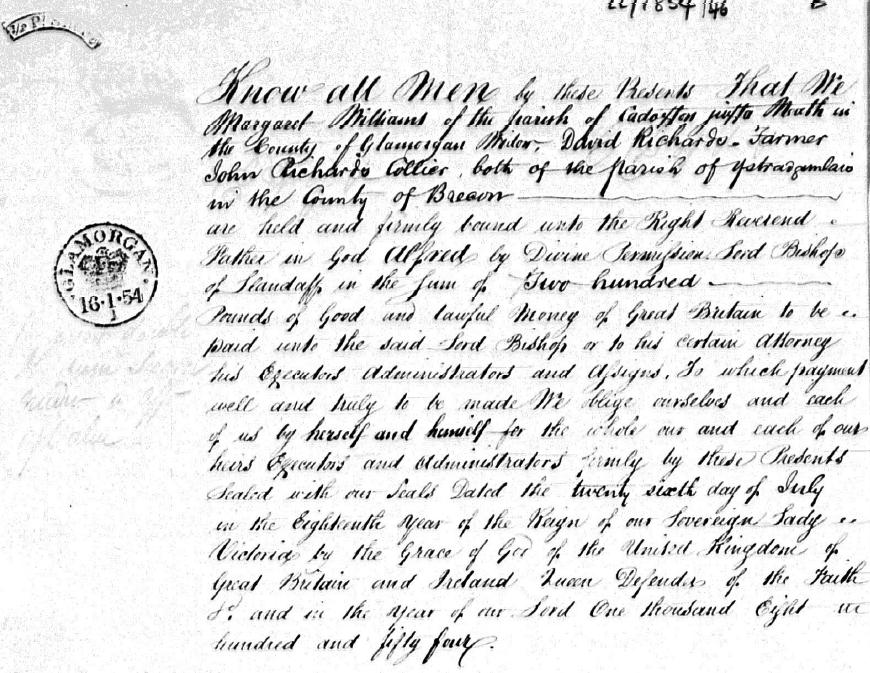 22/1854/46
B
Know all Men by these Presents That We
Margaret Williams of the parish of Cadoxton juxta Neath in
the County of Glamorgan Widow, David Richards Farmer
John Richards Collier, both of the parish of Ystradgunlais
in the County of Brecon
are held and firmly bound unto the Right Reverend
Father in God Alfred by Divine Permission Lord Bishop
of Llandaff in the Sum of Two hundred
Pounds of Good and lawful Money of Great Britain to be
paid unto the said Lord Bishop or to his certain Attorney
his Executors Administrators and Assigns, To which payment
well and truly to be made We oblige ourselves and each
of us by herself and himself for the whole our and each of our
heirs Executors and Administrators firmly by these Presents
Sealed with our Seals Dated the twenty sixth day of July
in the Eighteenth Year of the Reign of our Sovereign Lady
Victoria by the Grace of God of the United Kingdom of
Great Britain and Ireland Queen Defender of the Faith
&c. and in the Year of our Lord One thousand Eight
hundred and fifty four.
GLAMORGAN
16·1·54